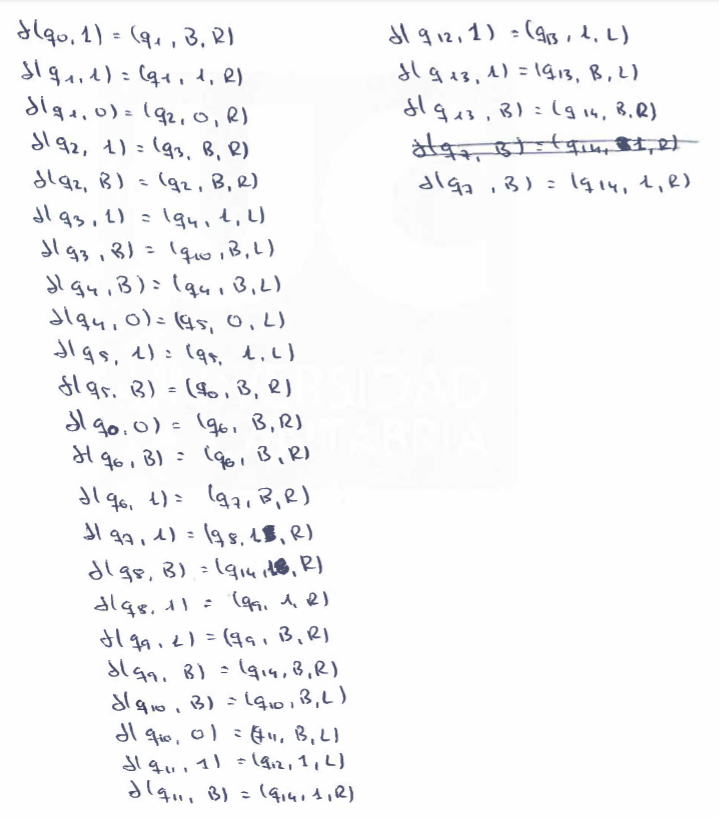 δ(q0, 1) = (q1, B, R)
δ(q1, 1) = (q1, 1, R)
δ(q1, 0) = (q2, 0, R)
δ(q2, 1) = (q3, B, R)
δ(q2, B) = (q2, B, R)
δ(q3, 1) = (q4, 1, L)
δ(q3, B) = (q10, B, L)
δ(q4, B) = (q4, B, L)
δ(q4, 0) = (q5, 0, L)
δ(q5, 1) = (q5, 1, L)
δ(q5, B) = (q0, B, R)
δ(q0, 0) = (q6, B, R)
δ(q6, B) = (q6, B, R)
δ(q6, 1) = (q7, B, R)
δ(q7, 1) = (q8, 1, R)
δ(q8, B) = (q14, 1, R)
δ(q8, 1) = (q9, 1, R)
δ(q9, 1) = (q9, B, R)
δ(q9, B) = (q14, B, R)
δ(q10, B) = (q10, B, L)
δ(q10, 0) = (q11, B, L)
δ(q11, 1) = (q12, 1, L)
δ(q11, B) = (q14, 1, R)
δ(q12, 1) = (q13, 1, L)
δ(q13, 1) = (q13, B, L)
δ(q13, B) = (q14, B, R)
δ(q7, B) = (q14, 1, R)
δ(q7, B) = (q14, 1, R)